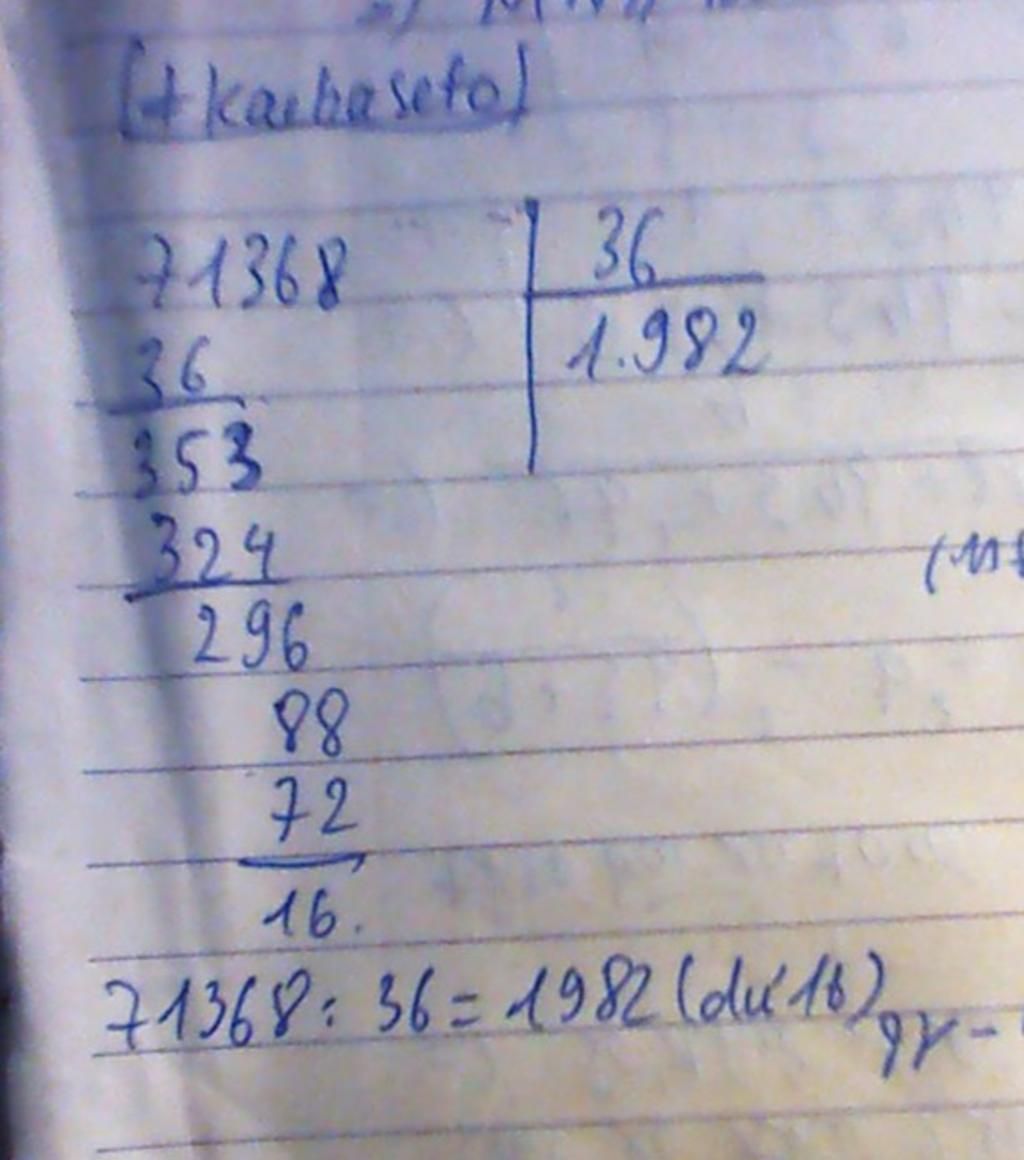 71368 36
36 1.982
353
324
296
88
72
16.
71368: 36 = 1982 (dư 16)